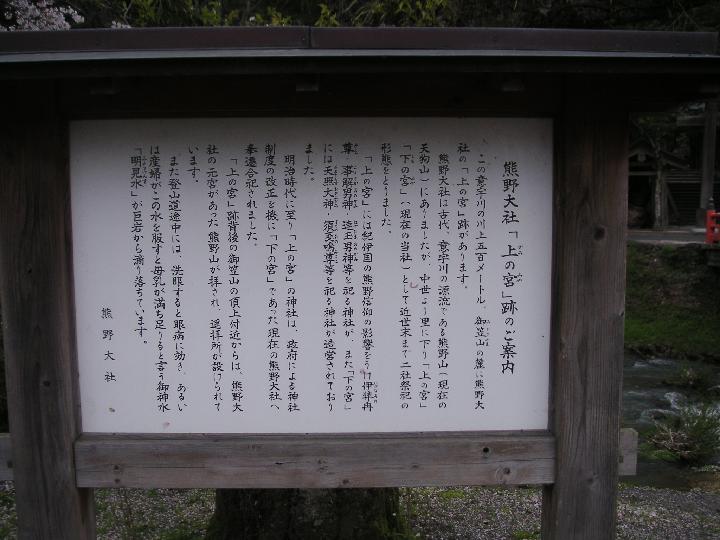 熊野大社「上の宮」跡のご案内
この意宇川の川上五百メートル、御笠山の麓に熊野大
社の「上の宮」跡があります。
熊野大社は古代、意宇川の源流である熊野山(現在の
天狗山)にありましたが、中世より里に下り「上の宮」
「下の宮」(現在の当社)として近世末まで二社祭祀の
形態をとりました。
「上の宮」には紀伊国の熊野信仰の影響をうけ伊弉冉
尊・事解男神・速玉男神等を祀る神社が、また「下の宮」
には天照大神・須盞嗚尊等を祀る神社が造営されており
ました。
明治時代に至り「上の宮」の神社は、政府による神社
制度の改正を機に「下の宮」であった現在の熊野大社へ
奉遷合祀されました。
「上の宮」跡背後の御笠山の頂上付近からは、熊野大
社の元宮があった熊野山が拝され、遥拝所が設けられて
います。
また登山道途中には、洗眼すると眼病に効き、あるい
は産婦がこの水を服すと母乳が満ち足りると言う御神水
「明見水」が巨岩から滴り落ちています。
熊野大社